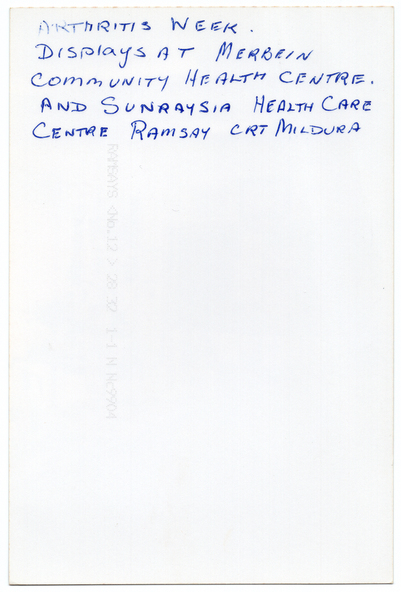 ARTHRITIS WEEK.
DISPlAYS AT MERBEIN
COMMUNITY HEALTH CENTRE.
AND SUNRAYSIA HEALTH CARE
CENTRE RAMSAY CRT MILDURA